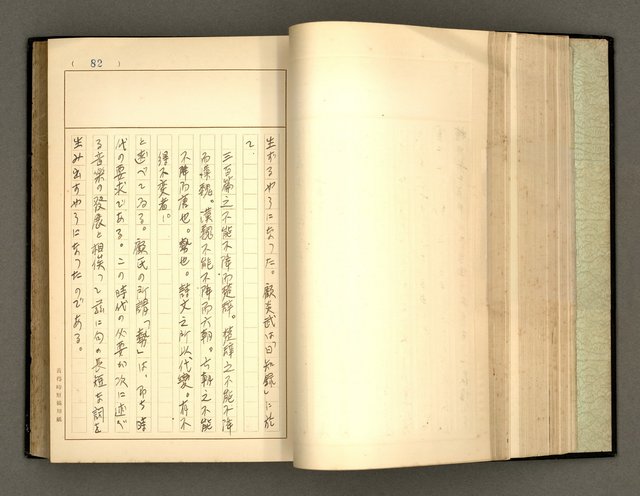 ( 82 )
生ずるやうになった。顧炎武は「日知録」に於
て、
三百篇之不能不降而楚辞。楚辞之不能不降
而漢魏。漢魏之不能不降而六朝。六朝之不能
不降而唐也。勢也。詩文之所以代變。有不
得不変者。
と述べてゐる。顧氏の所謂「勢」は、即ち時
代の要求である。この時代の必要が次に述べ
る音楽の発展と相俟つて茲に句の長短な詞を
生み出すやうになつたのである。